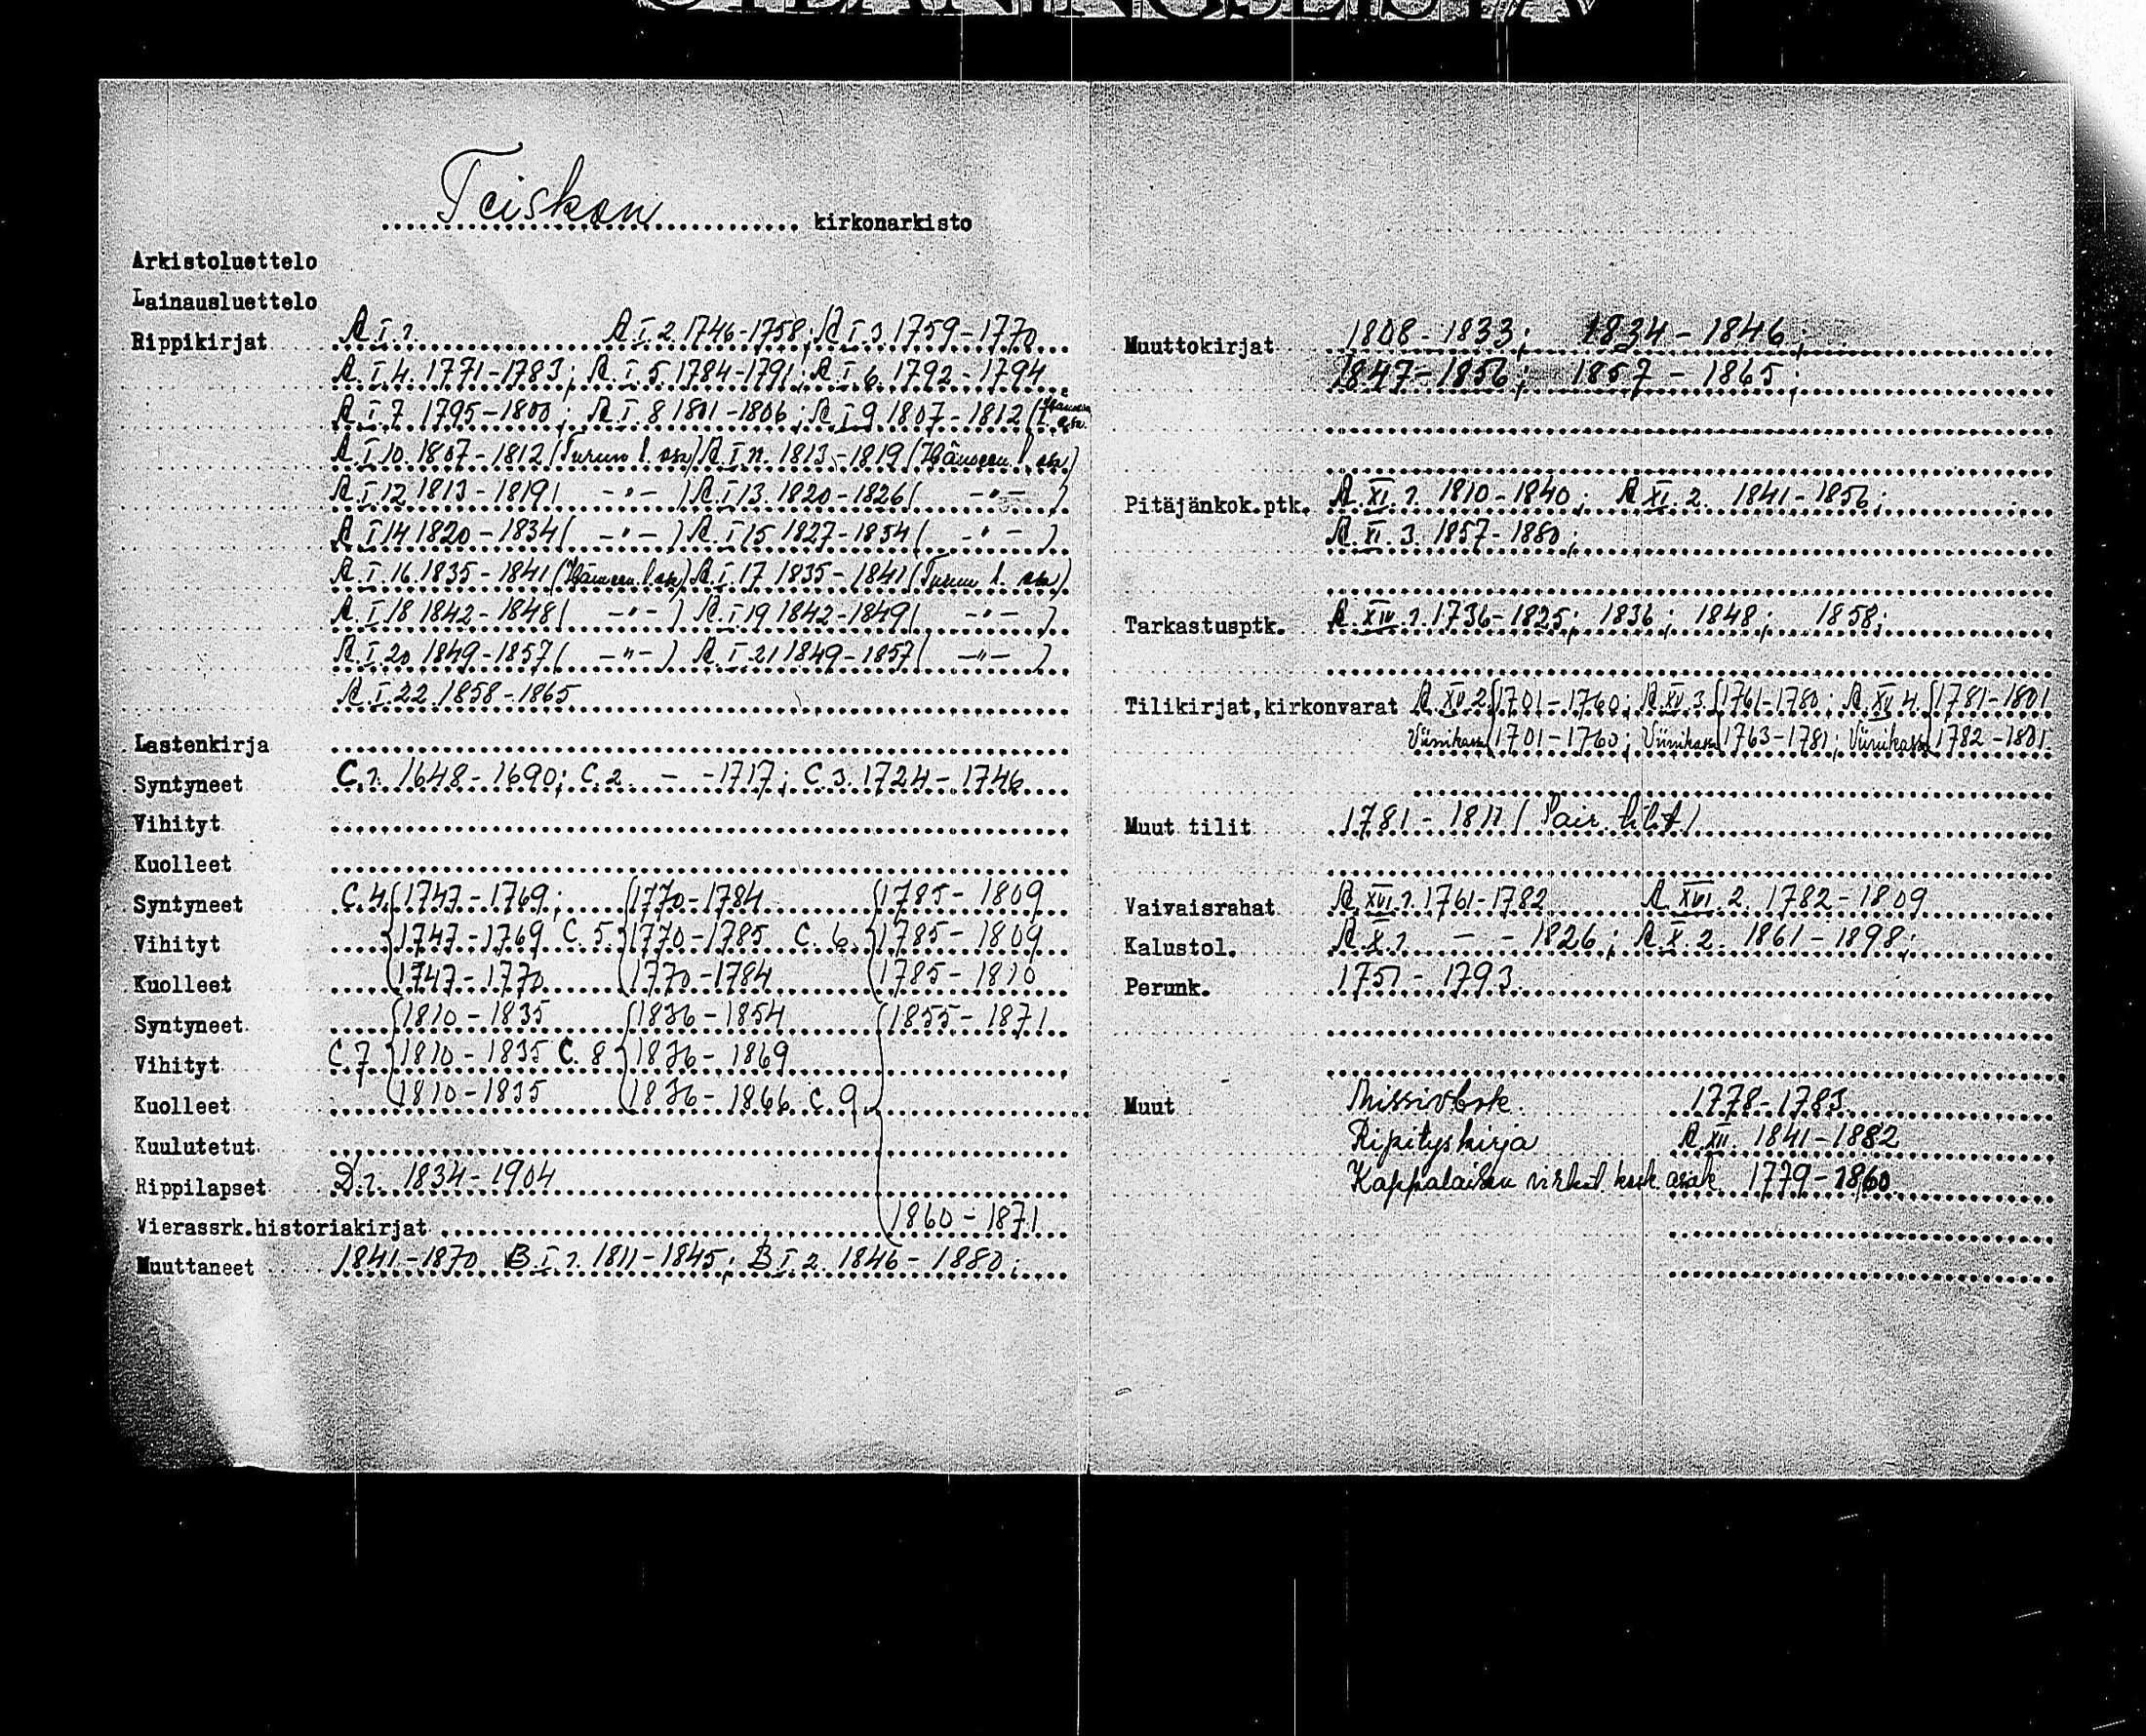 Teiskon kirkonarkisto
Arkistoluettelo
Lainausluettelo
Rippikirjat A.I.1. A.I.2 1746-1758; A.I.3 1759-1770
A.I.4. 1771-1783; A.I.5 1784-1791; A.I.6. 1792-1794
A.I.7 1795-1800; A.I.8 1801-1806; A.I.9 1807-1812 (Hämeen l. osa
A.I.10. 1807-1812 (Turun l. osa) A.I.11. 1813-1819 (Hämeen l. osa)
A.I.12 1813-1819 ( -"- ) A.I.13. 1820-1826 ( -"- )
A.I.14 1820-1834 ( -"- ) A.I.15 1827-1834 ( -"- )
A.I.16. 1835-1841 (Hämeen l. osa) A.I.17 1835-1841 (Turun l. osa)
A.I.18 1842-1848 ( -"- ) A.I.19 1842-1849 ( -"- )
A.I.20 1849-1857 ( -"- ) A.I.21 1849-1857 ( -"- )
A.I.22. 1858-1865
Lastenkirja
Syntyneet C.1. 1648-1690; C.2. - -1717; C.3. 1724-1746
Vihityt
Kuolleet
Syntyneet C.4. 1747-1769; 1770-1784 1785-1809
Vihityt 1747-1769 C.5. 1770-1785 C.6. 1785-1809
Kuolleet 1747-1770 1770-1784 1785-1810
Syntyneet 1810-1835 1836-1854 1855-1871
Vihityt C.7 1810-1835 C.8 1836-1869
Kuolleet 1810-1835 1836-1866 C.9
Kuulutetut
Rippilapset D.1. 1834-1904
Vierassrk.historiakirjat 1860-1871
Muuttaneet 1841-1870 B.I.1. 1811-1845; B.I.2. 1846-1880;
Muuttokirjat 1808-1833; 1834-1846;
1847-1856; 1857-1865;
Pitäjänkok.ptk. A.XI.1. 1810-1840; A.XI.2. 1841-1856;
A.XI.3. 1857-1880;
Tarkastusptk. A.XIV.1. 1736-1825; 1836; 1848; 1858;
Tilikirjat,kirkonvarat A.XV.2. 1701-1760; A.XV.3. 1761-1780; A.XV.4. 1781-1801
Viinikassa 1701-1760; Viinikassa 1763-1781; Viinikassa 1782-1801.
Muut tilit 1781-1811 ( tilit)
Vaivaisrahat A.XVI.1. 1761-1782 A.XVI.2. 1782-1809
Kalustol. A.X.1. - - 1826; A.X.2. 1861-1898;
Perunk. 1751-1793.
Muut Missivbok. 1778-1783.
Ripityskirja A.XII. 1841-1882
Kappalaisen virkat. kosk. asiak. 1779-1860